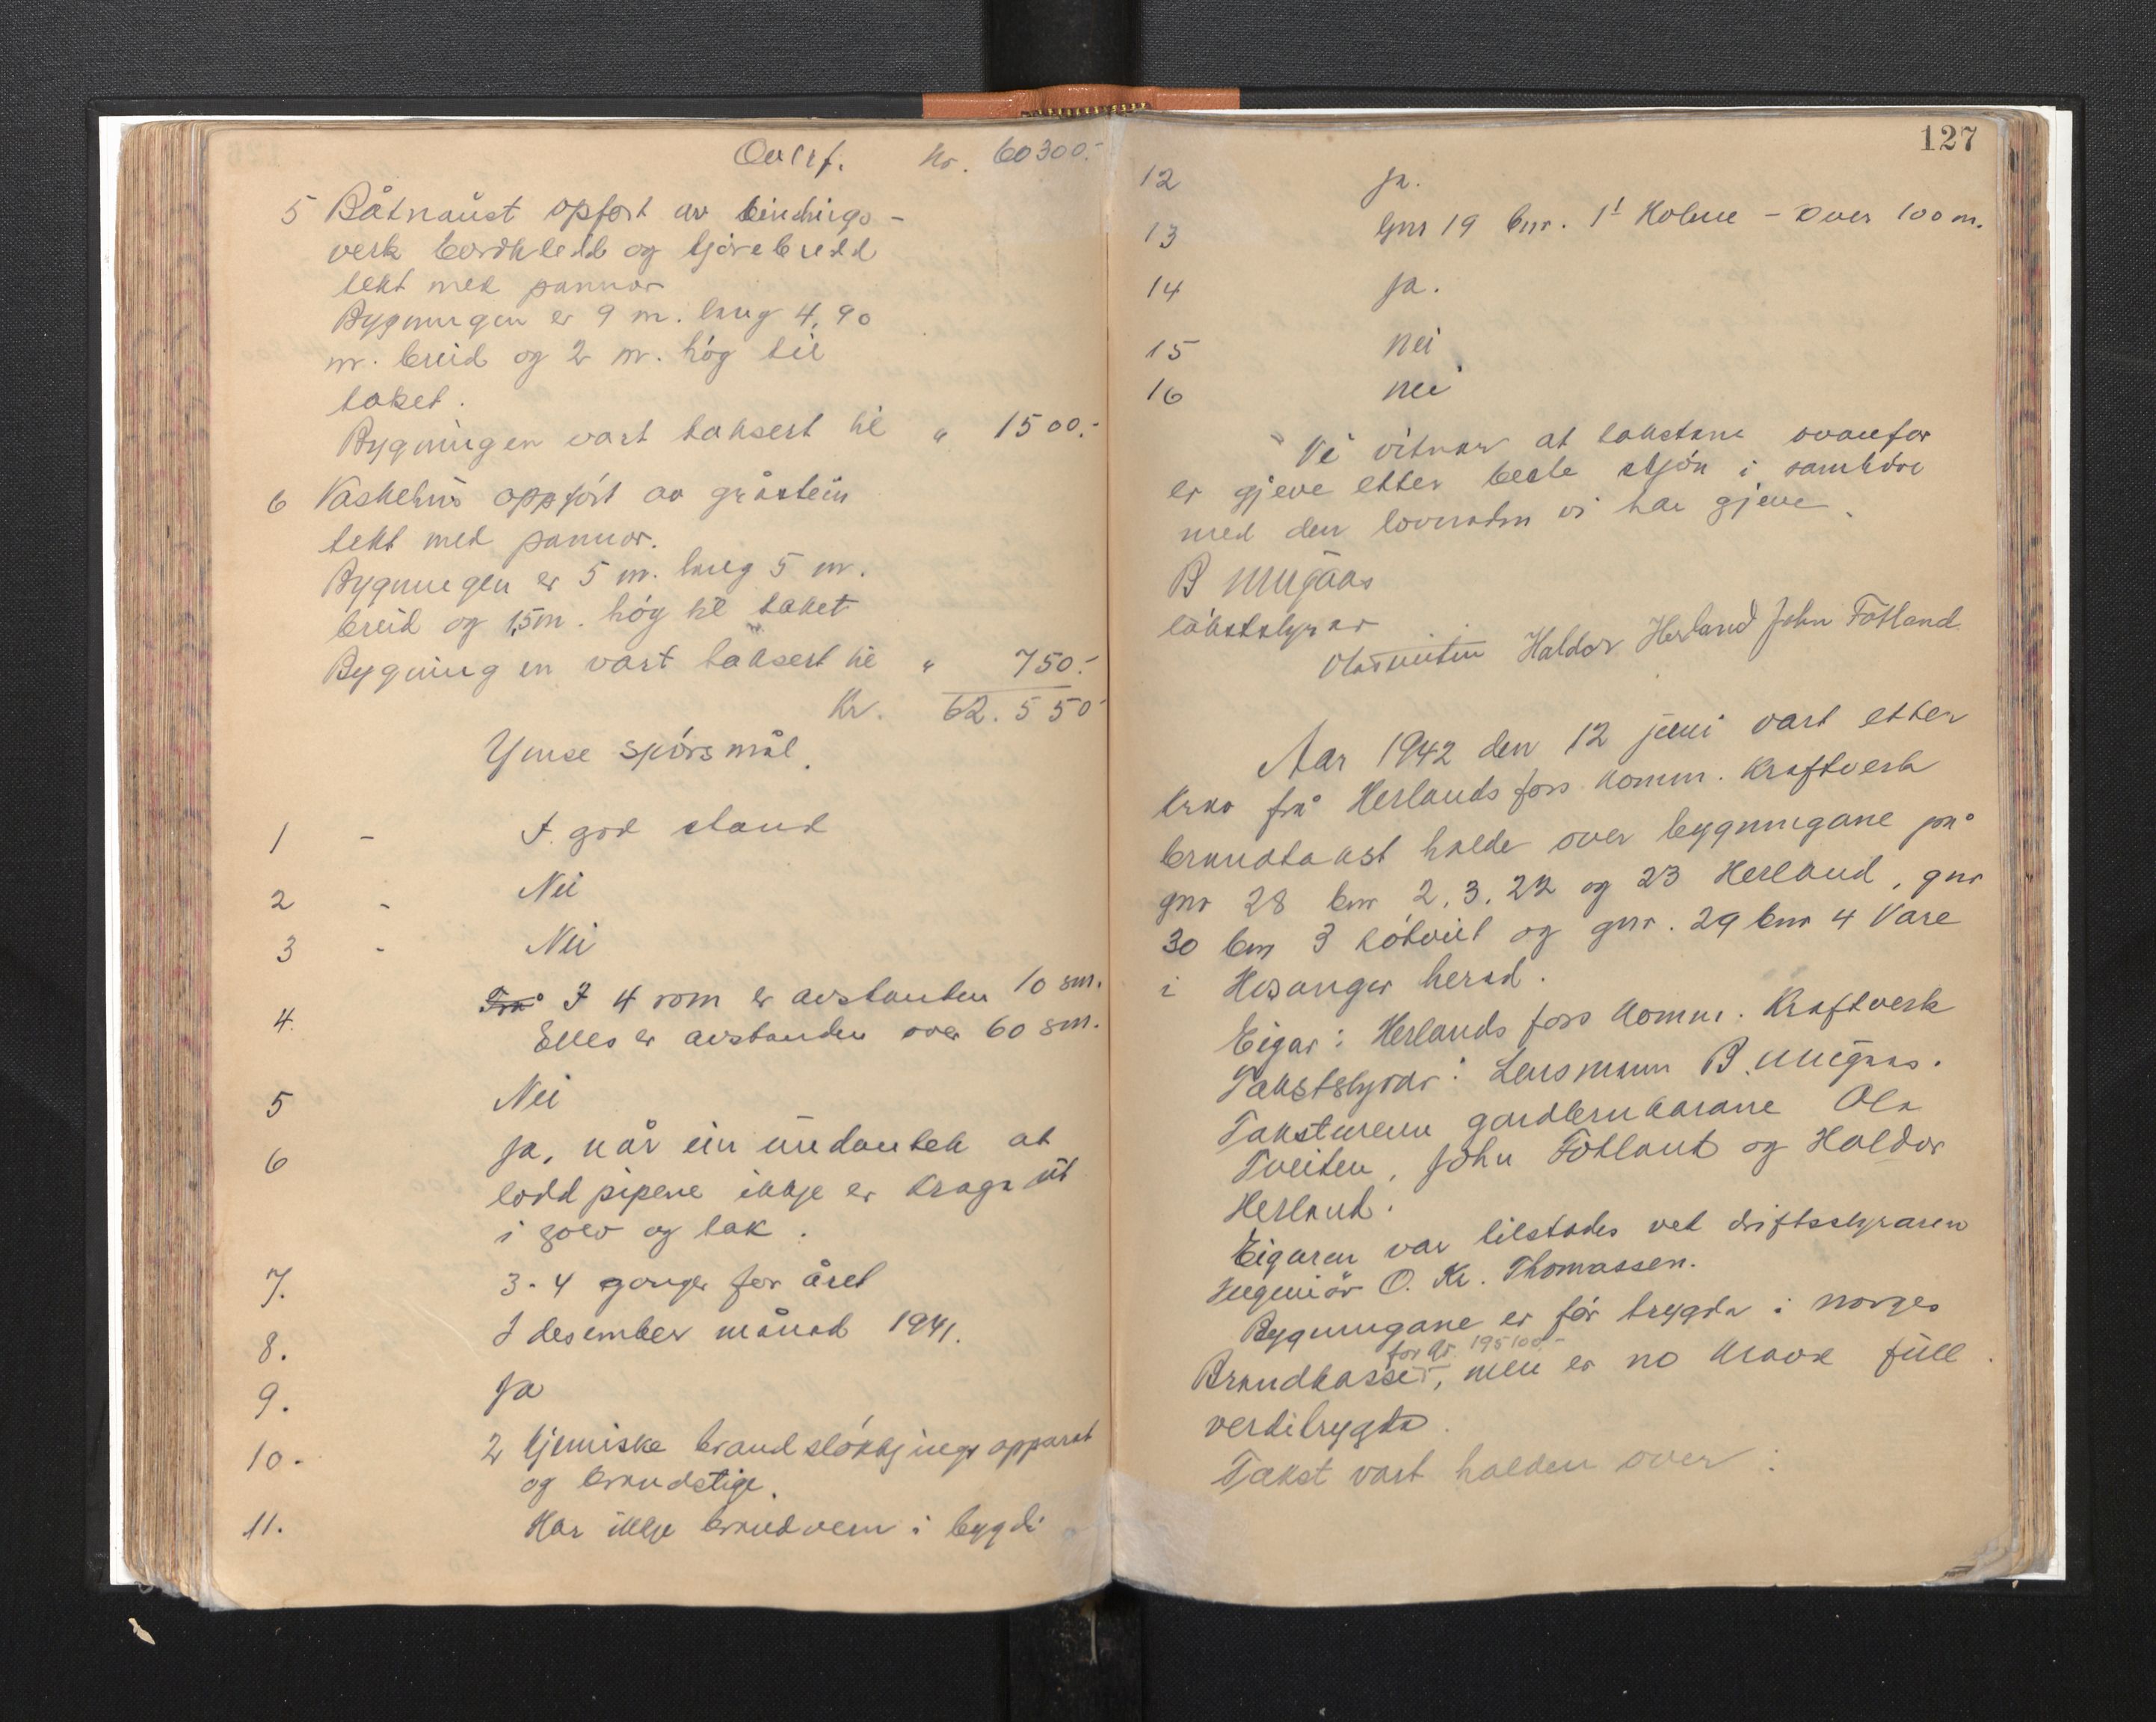 Overf. kr. 60300.-
5 Båtnaust opført av bindings-
verk bordkledd og tjørebredd
tekt med pannor
Bygningen er 9 m. lang 4,90
m. breid og 2 m. høg til
taket.
Bygningen vart taksert til " 1500.-
6 Vaskehus oppført av gråstein
tekt med pannor.
Bygningen er 5 m. lang 5 m.
breid og 1,5 m. høg til taket
Bygningen vart taksert til " 750.-
Kr. 62.550-
Ymse spörsmål.
1 - I god stand
2 - Nei
3 - Nei
4. Frå I 4 rom er avstanden 10 sm.
Elles er avstanden over 60 sm.
5 Nei
6 Ja, når ein undantek at
lodd pipene ikkje er kraga ut
i golv og tak.
7. 3-4 gonger for året
8. I desember månad 1941.
9. Ja
10. 2 kjemiske brandsløkkjings apparat
og brandstige.
11. Har ikkje brandvern i bygdi
127
12 Ja.
13 Gnr 19 bnr. 1 Holme - over 100 m.
14 Ja.
15 Nei
16 Nei
Vi vitnar at takstane ovanfor
er gjeve etter beste skjøn i samhøve
med den lovnaden vi har gjeve.
B
takststyrar
Ola Tveiten Haldor Herland John Fotland
Aar 1942 den 12 juni vart etter
krav frå Herlands foss komm. Kraftverk
brandtakst halde over bygningane på
gnr 28 bnr 2, 3, 22 og 23 Herland, gnr
30 bnr 3 Kötveit og gnr. 29 bnr 4 Vare
i Hosanger herad.
Eigar: Herlands foss komm. Kraftverk
Takststyrar: Lensmann B.
Takstmenn gardbrukarane Ola
Tveiten, John Fotland og Haldor
Herland.
Eigaren var tilstades ved driftsstyraren
Ingeniør O. Kr. Thomassen.
Bygningane er før trygda i Norges
for kr. 195100.-
Brandkasse, men er no kravd full
verditrygda.
Takst vart halden over: